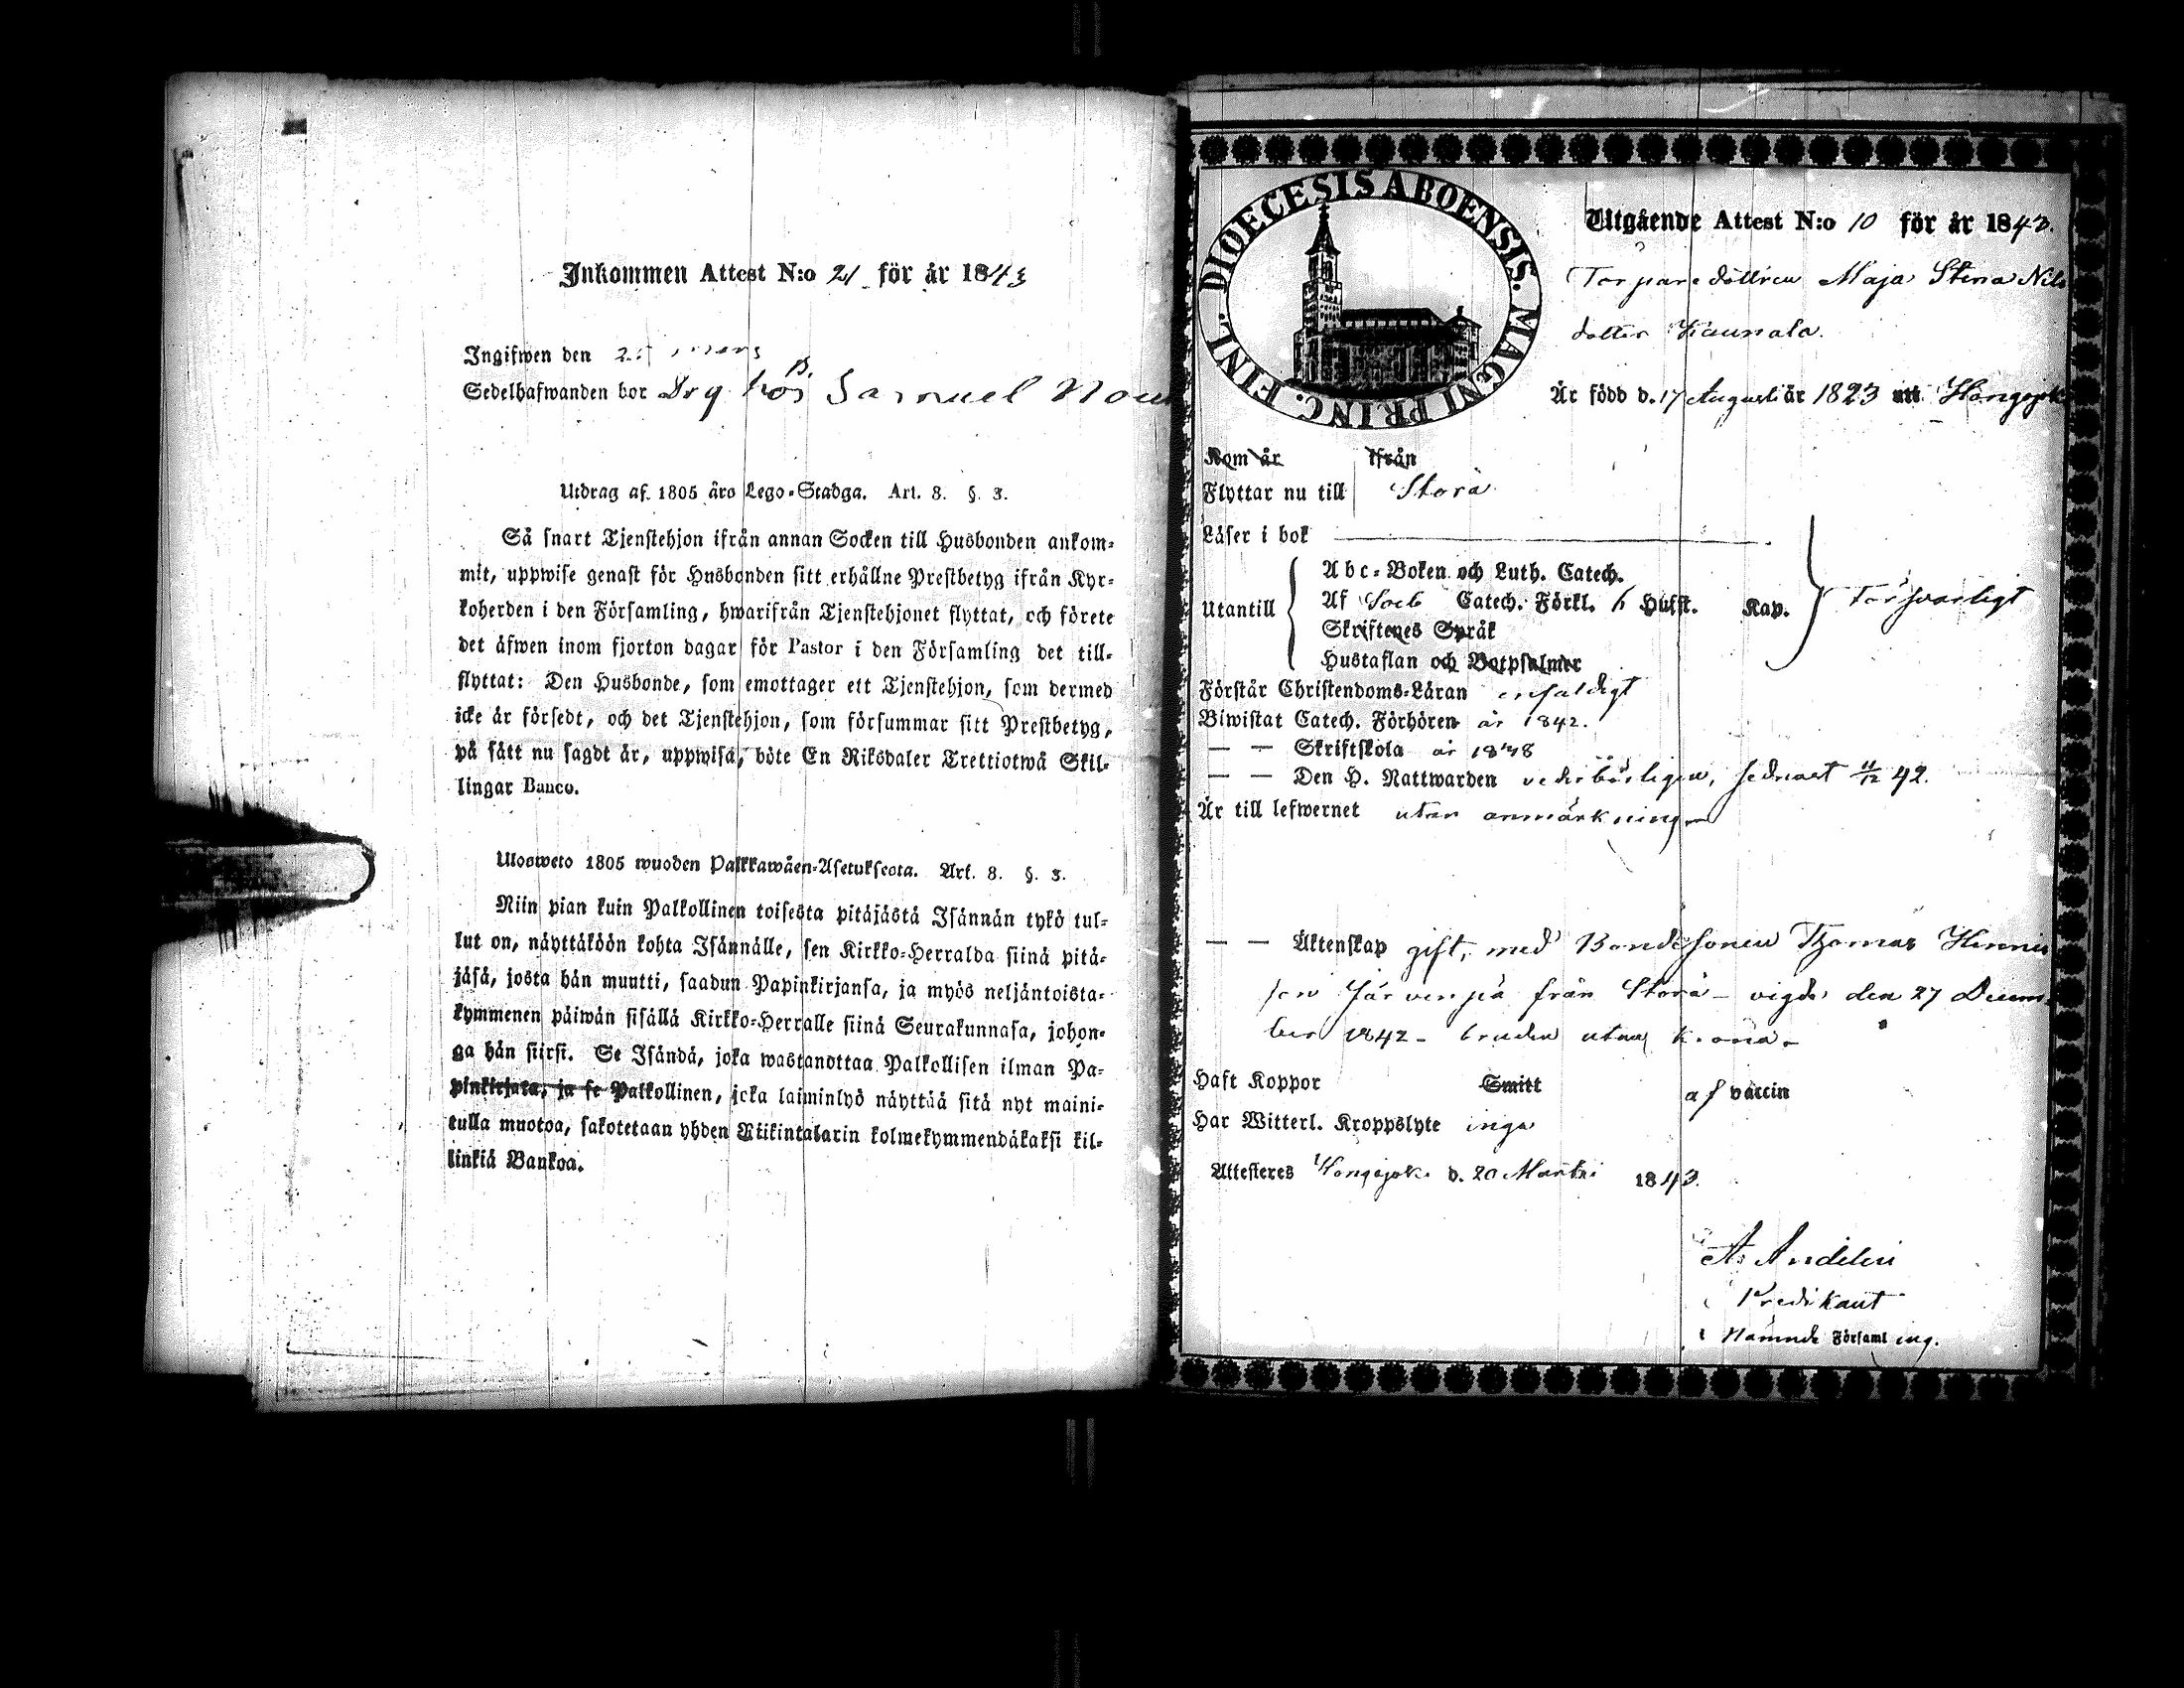 Inkommen Attest N:o 21 för år 1843
Ingifwen den
Sedelhafwanden bor hos Samuel
Utdrag af 1805 års Lego-Stadga. Art. 8. §. 3.
Så snart Tjenstehjon ifrån annan Socken till Husbonden ankom-
mit, uppwise genast för Husbonden sitt erhållne Prestbetyg ifrån Kyr-
koherden i den Församling, hwarifrån Tjenstehjonet flyttat, och förete
det äfwen inom fjorton dagar för Pastor i den Församling det till-
flyttat: Den Husbonde, som emottager ett Tjenstehjon, som dermed
icke är försedt, och det Tjenstehjon, som försummar sitt Prestbetyg,
på sätt nu sagdt är, uppwisa, böte En Riksdaler Trettiotwå Skil-
lingar Banco.
Ulosweto 1805 wuoden Palkkawäen-Asetuksesta. Art. 8. §. 3.
Niin pian kuin Palkollinen toisesta pitäjästä Isännän tykö tul-
lut on, näyttäköön kohta Isännälle, sen Kirkko-Herralda siinä pitä-
jäsä, josta hän muutti, saadun Papinkirjansa, ja myös neljäntoista-
kymmenen päiwän sisällä Kirkko-Herralle siinä Seurakunnasa, johon-
ga hän siirsi. Se Isändä, joka wastanottaa Palkollisen ilman Pa-
pinkirjata, ja se Palkollinen, joka laiminlyö näyttää sitä nyt maini-
tulla muotoa, sakotetaan yhden Riikintalarin kolmekymmendäkaksi kil-
linkiä Bankoa.
DIOECESIS ABOENSIS. MAGNI PRINC. FINL.
Utgående Attest N:o 10 för år 1843.
Torparedottren Maja Stina Nils
dotter Kaunala.
Är född d. 17 Augusti år 1823 uti
Kom år ifrån
Flyttar nu till Storå
Läser i bok
Utantill
Abc-Boken och Luth. Catech.
Af Catech. Förkl. Hufst. Kap.
Skriftenes Språk
Hustaflan och Botpsalmer
försvarligt
Förstår Christendoms-Läran enfaldigt
Biwistat Catech. Förhören år 1842.
— — Skriftskola år
— — Den H. Nattwarden vederbörligen, sednast 11/12 42.
Är till lefwernet utan anmärkning
— — Äktenskap gift, med Bondesonen Thomas
son Järvenpä från Storå - vigde den 27 Decem-
ber 1842 - bruden utan krona.
Haft Koppor Smitt af vaccin
Har Witterl. Kroppslyte inga
Attesteres d. 20 Martii 1843.
Predikant
i nämnde Församling.